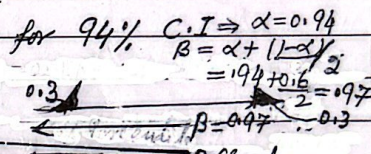 for 94% C.I ⇒ α = 0.94
β = α + (1-α)/2
= .94 + 0.6/2 = .97
0.3
β = 0.97 0.3